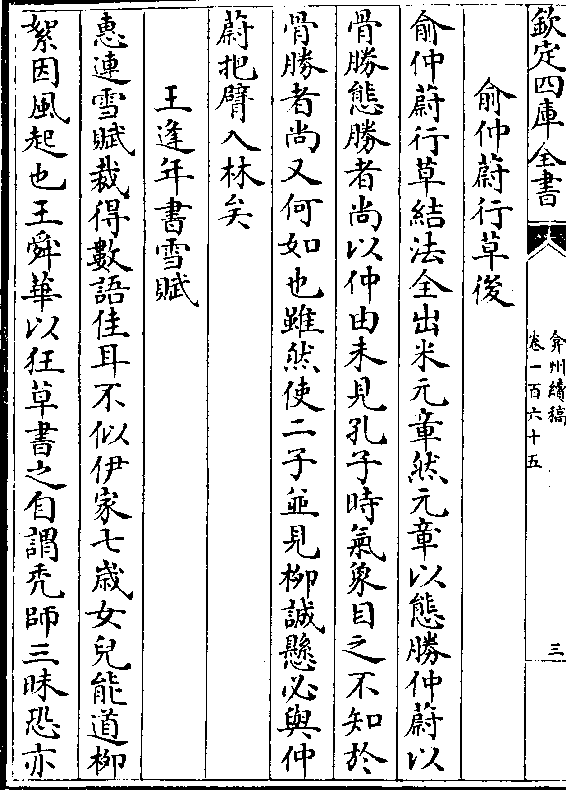 欽定四庫全書
弇州續稿
卷一百六十五
三
俞仲蔚行草後
俞仲蔚行草結法全出米元章然元章以態勝仲蔚以
骨勝態勝者尚以仲由未見孔子時氣象目之不知於
骨勝者尚又何如也雖然使二子並見柳誠懸必與仲
蔚把臂入林矣
王逢年書雪賦
惠連雪賦裁得數語佳耳不似伊家七歲女兒能道柳
絮因風起也王舜華以狂草書之自謂禿師三昧恐亦